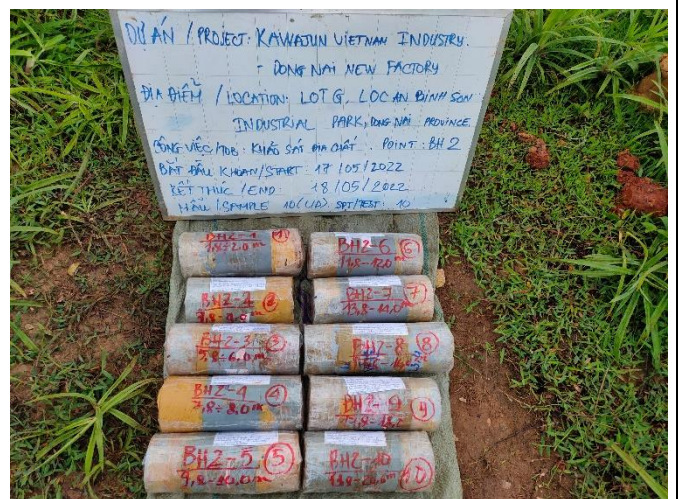 DỰ ÁN / PROJECT: KAWAJUN VIETNAM INDUSTRY.
- DONG NAI NEW FACTORY
ĐỊA ĐIỂM / LOCATION: LOT G, LOC AN BINH SON
INDUSTRIAL PARK, DONG NAI PROVINCE.
CÔNG VIỆC/JOB: KHẢO SÁT ĐỊA CHẤT. POINT: BH2
BẮT ĐẦU KHOAN/START: 17/05/2022
KẾT THÚC / END: 18/05/2022
MẪU / SAMPLE 10(U/D). SPT/TEST: 10
BH2-1
1,8÷2,0m
BH2-6 6
11,8-12,0m
BH2-2 2
BH2-7 7
13,8-14,0m
BH2-3 3
5,8÷6,0m
BH2-8 8
BH2-4 4
7,8-8,0m
BH2-9 9
BH2-5 5
9,8-10,0m
BH2-10 10